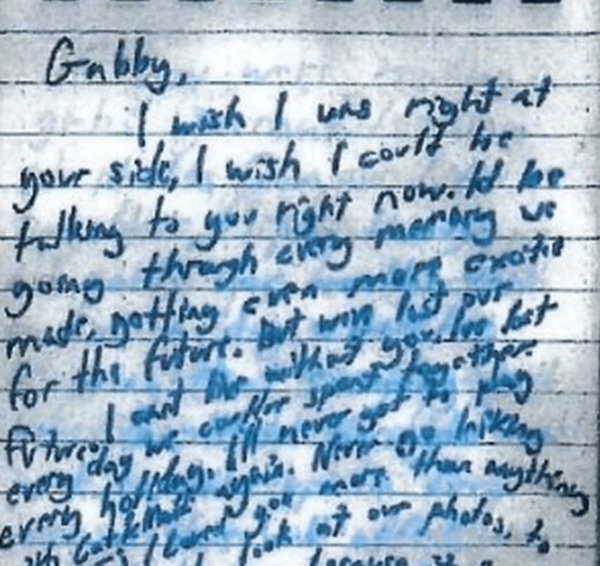 Gabby,
I wish I was right at
your side, I wish I could be
talking to you right now. Id be
going through every memory we
made, getting even more excited
for the future. But we've lost our
I cant live without you. Ive lost
future. day we could've spent together.
every holiday. I'll never get to play
every again. Never go hiking
with I loved you more than anything
look at our photos, to
because